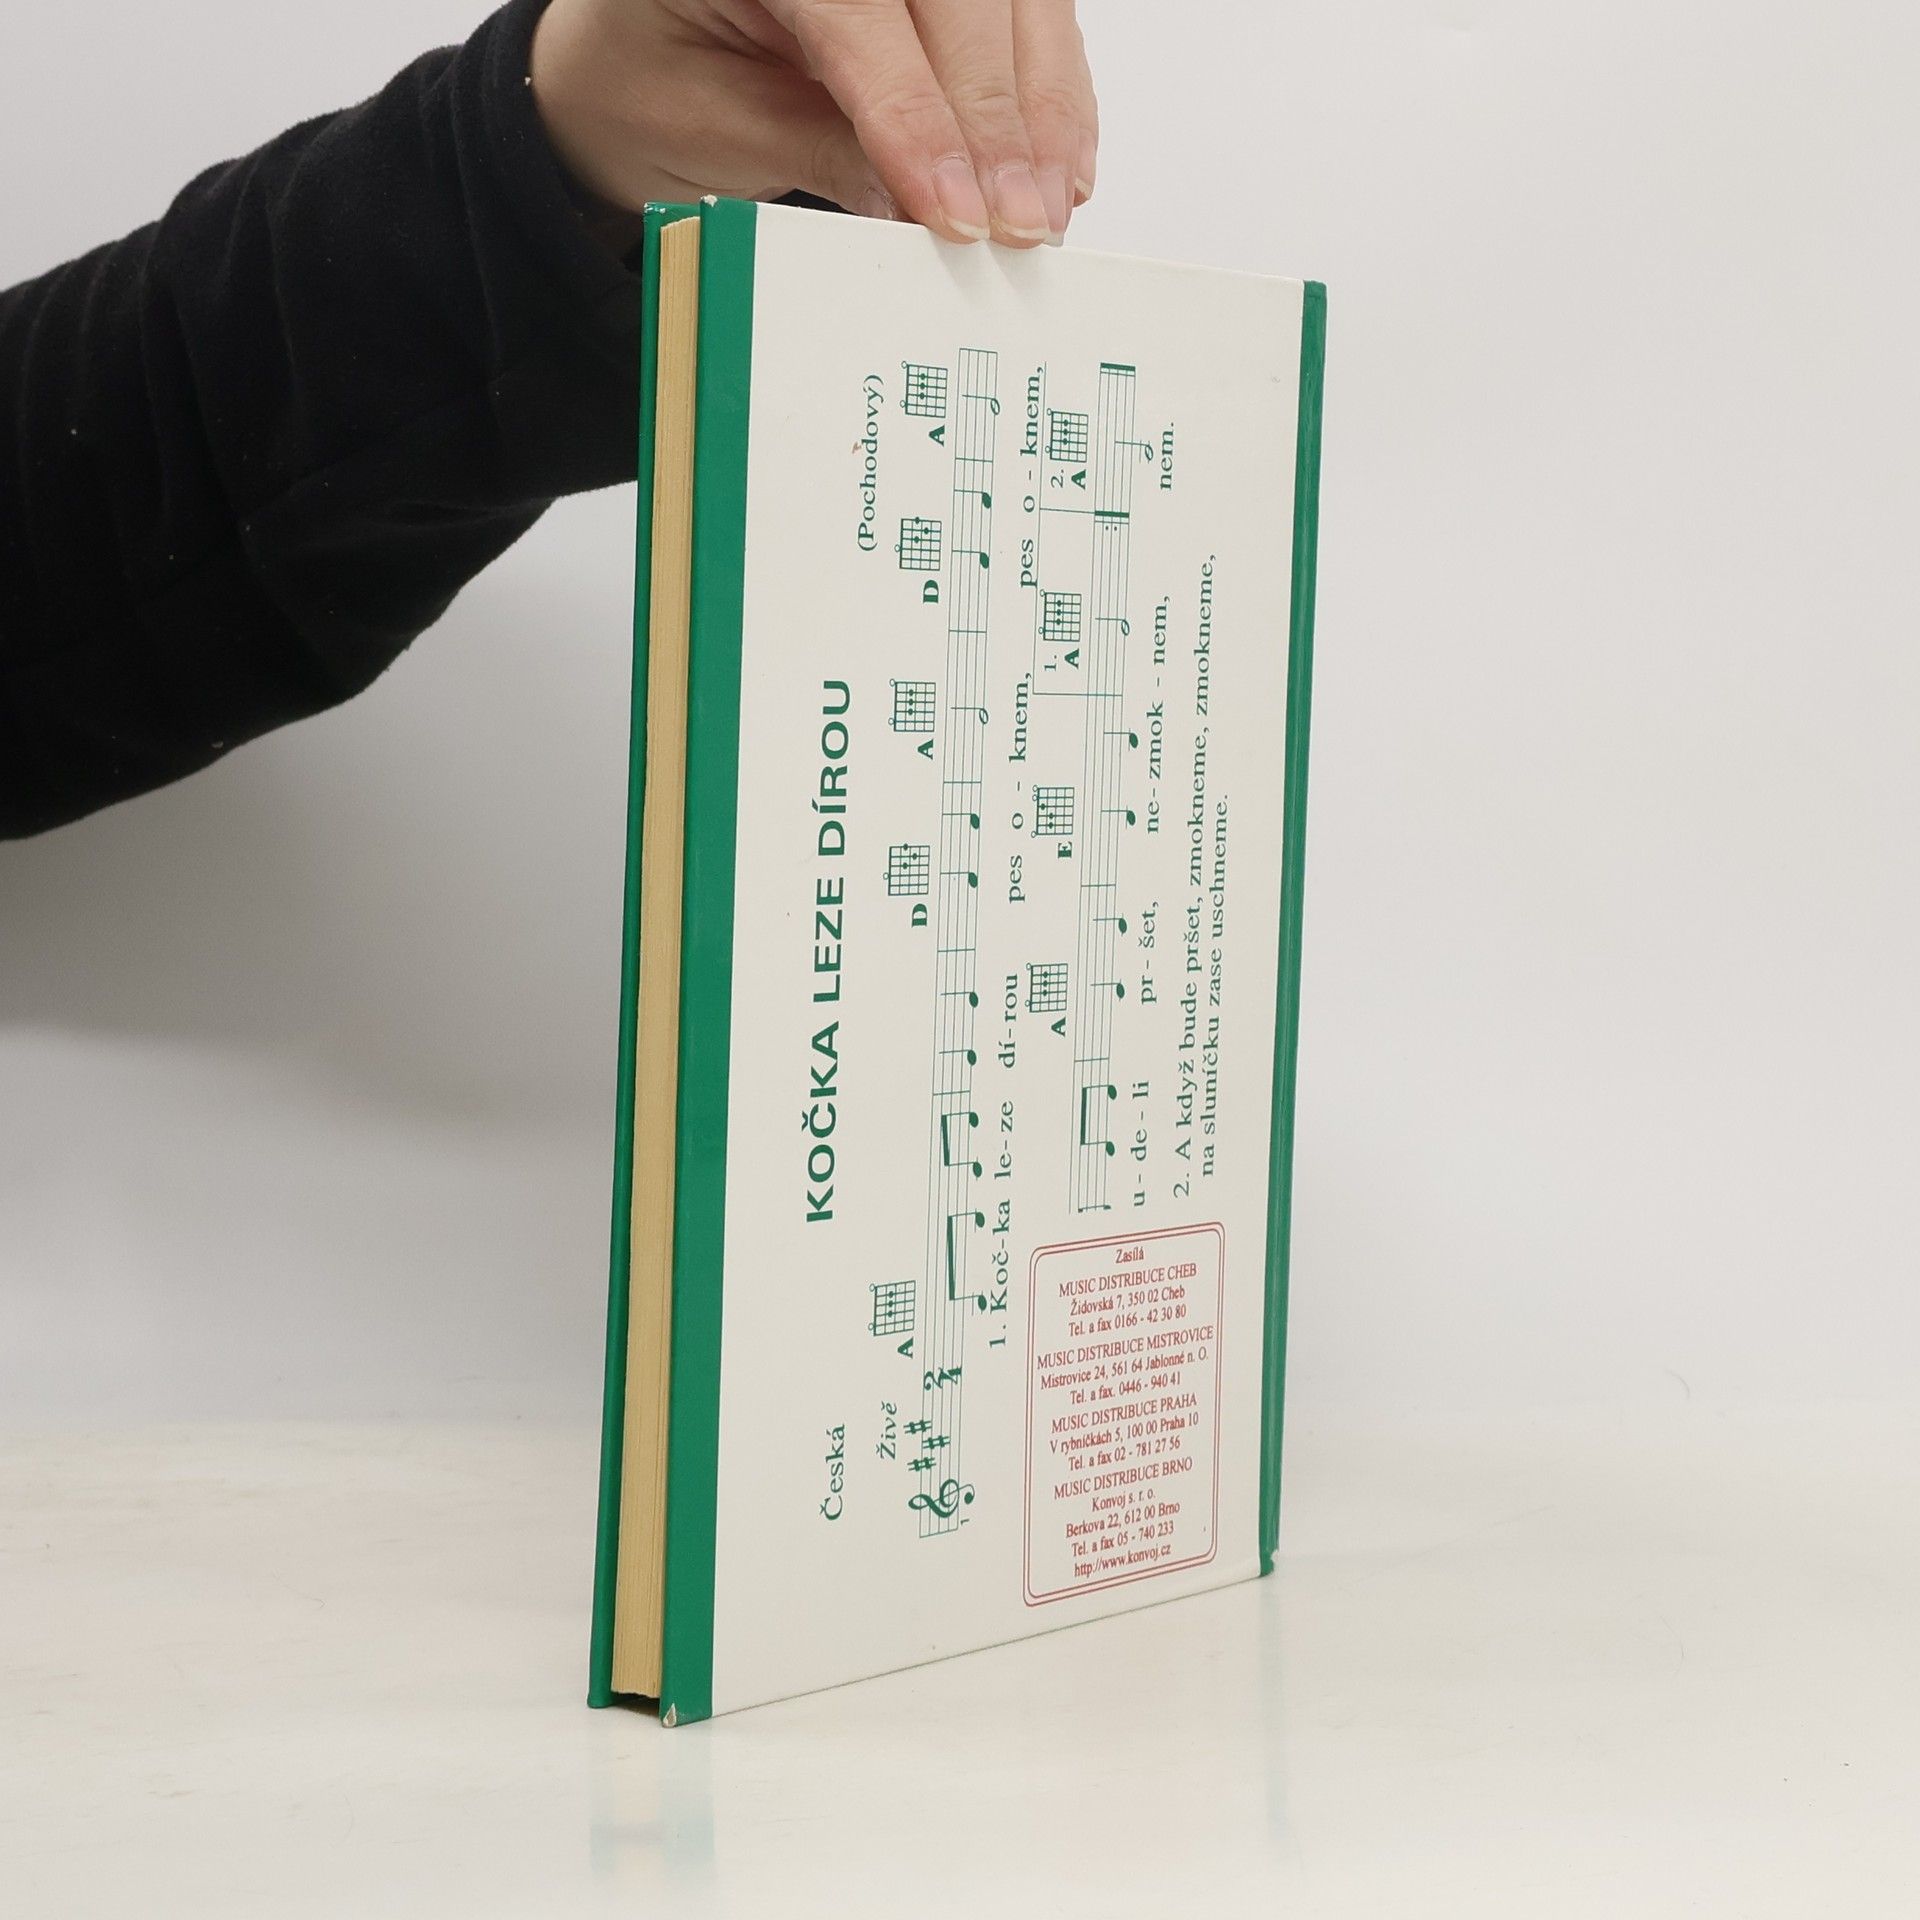 KOČKA LEZE DÍROU
Česká
(Pochodový)
Živě
A D A D A
2
4
1
1. Koč-ka le-ze dí-rou pes o - knem, pes o - knem,
1. 2.
A E A A
u - de - li pr - šet, ne - zmok - nem, nem.
2. A když bude pršet, zmokneme, zmokneme,
na sluníčku zase uschneme.
Zasílá
MUSIC DISTRIBUCE CHEB
Židovská 7, 350 02 Cheb
Tel. a fax 0166 - 42 30 80
MUSIC DISTRIBUCE MISTROVICE
Mistrovice 24, 561 64 Jablonné n. O.
Tel. a fax. 0446 - 940 41
MUSIC DISTRIBUCE PRAHA
V rybníčkách 5, 100 00 Praha 10
Tel. a fax 02 - 781 27 56
MUSIC DISTRIBUCE BRNO
Konvoj s. r. o.
Berkova 22, 612 00 Brno
Tel. a fax 05 - 740 233
http://www.konvoj.cz